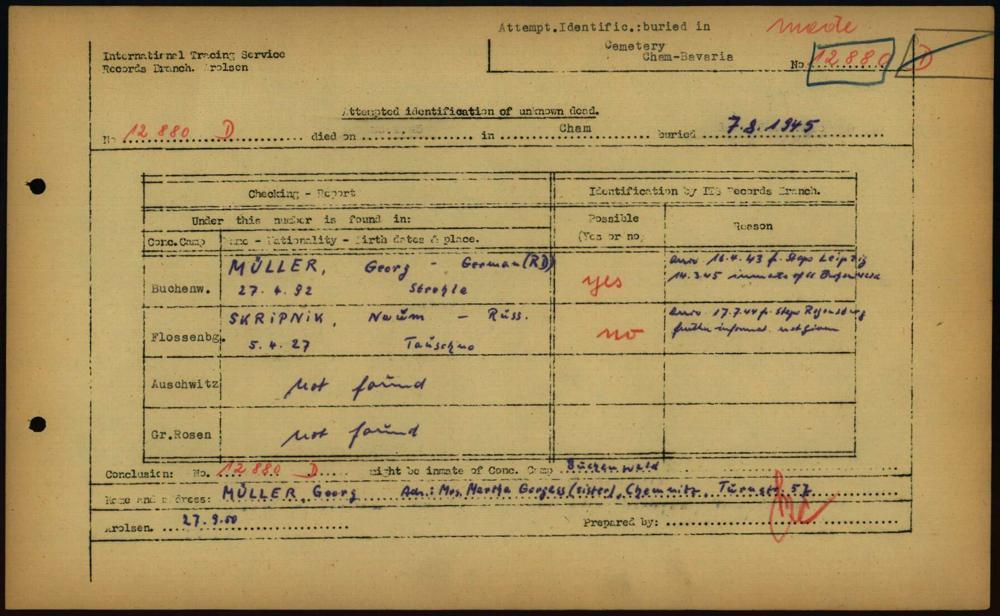 Attempt.Identific.:buried in
made
Cemetery
Cham-Bavaria
No 12880 D
International Tracing Service
Records Branch. Arolsen
Attempted identification of unknown dead.
No 12 880 D died on in Cham buried 7.8.1945
Checking - Report
Identification by ITS Records Branch.
Under this number is found in:
Possible
(Yes or no)
Reason
Conc.Camp
Name - Nationality - Birth dates & place.
MÜLLER, Georg - German (RD)
Buchenw. 27.4.92
yes
arriv 16.4.43 f. Stapo Leipzig
14.3.45 inmate of
SKRiPNiK, Naüm - Rüss.
Flossenbg. 5.4.27
no
arriv 17.7.44 f. Stapo Regensburg
further informat. not given
Auschwitz not found
Gr.Rosen not found
Conclusion: No. 12 880 D might be inmate of Conc. Camp Büchenwald
Name and address: MÜLLER, Georg Adr.: Mrs. Martha (sister), Chemnitz, Türnstr. 57
Arolsen. 27.9.50
Prepared by: